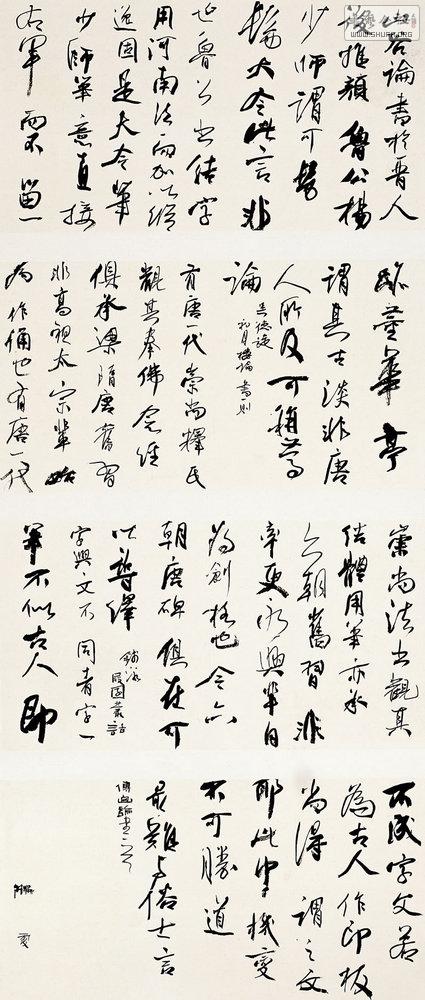 山谷論書於晋人
後推顏魯公楊
少師謂可髣
髴大令此言非
也魯公出結字
用河南法而加以縱
逸固是大令筆
少師筆意直接
右軍而不留一
跡董華亭
謂其古淡非唐
人所及可稱篤
論
吳德旋
初月樓論書一則
有唐一代崇尚釋氏
觀其奉佛
俱承梁隋舊習
非高祖太宗輩始
為作俑也有唐一代
崇尚法書觀其
結體用筆亦承
六朝舊習非
率更永興輩自
為創格也今六
朝唐碑俱在可
以尋繹
錢泳
履園叢話
字與文不同者字一
筆不似古人即
不成字文若
為古人作印板
尚得謂之文
耶此中機變
不可勝道
最難與俗士言
傅山論書
WWW.SHUFA.ORG